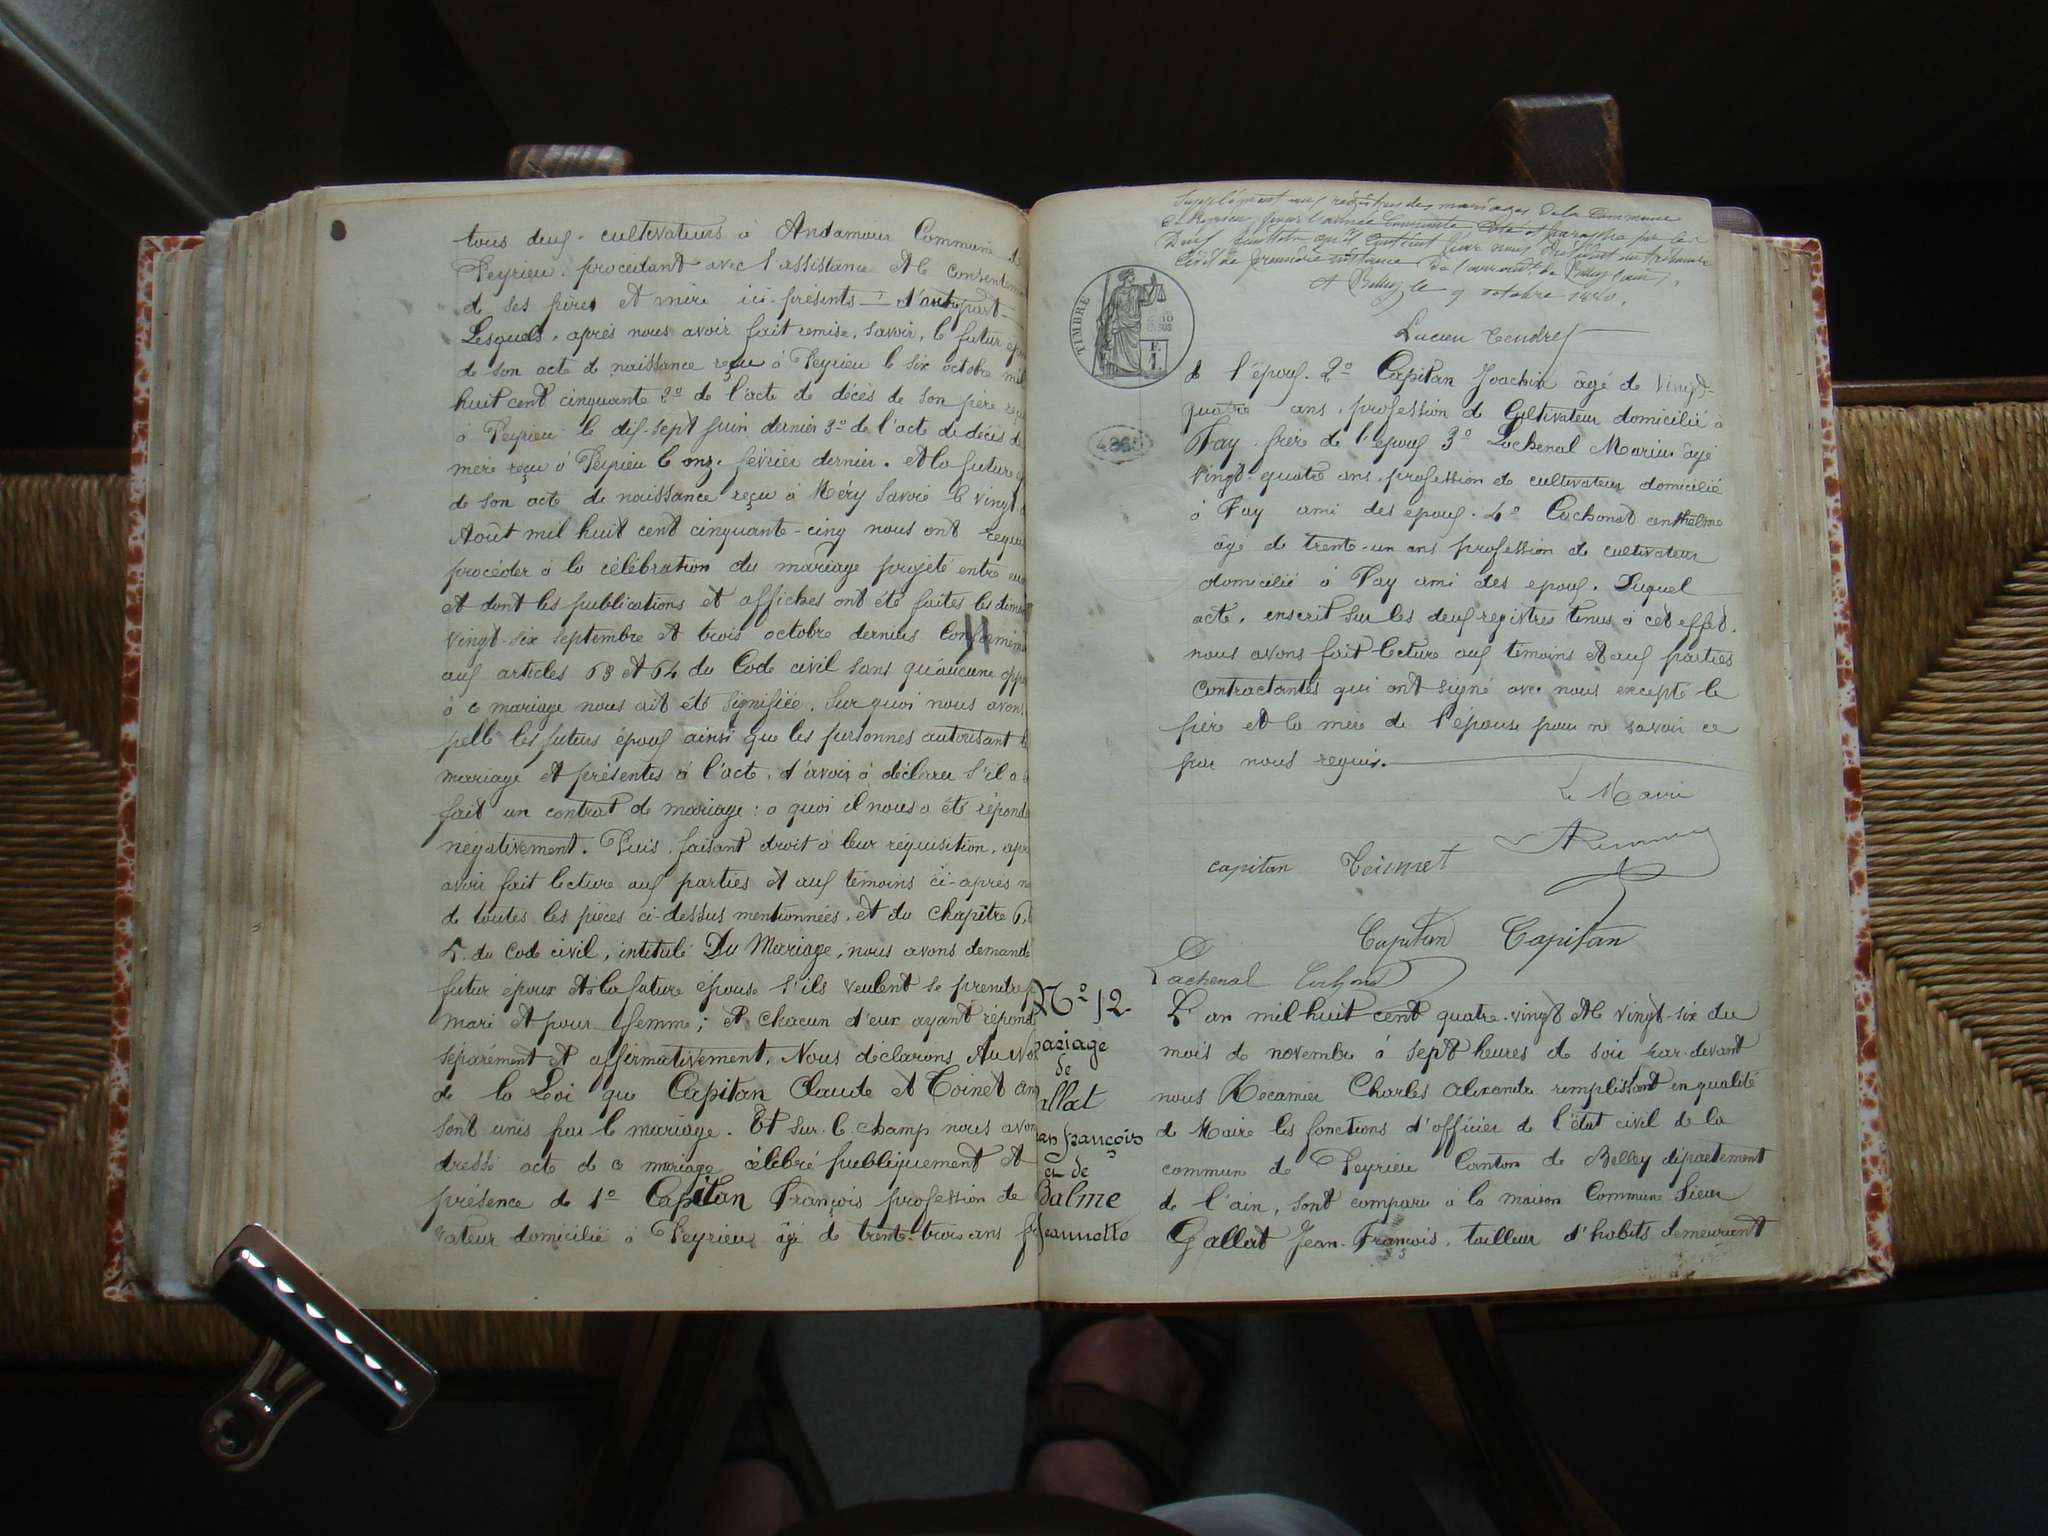 tous deux cultivateurs à Andamour Commune de
Peyrieu. procédant avec l'assistance et le consentem
de ses pères et mère ici-présents — d'autre part —
Lesquels, après nous avoir fait remise, savoir, le futur
de son acte de naissance reçu à Peyrieu le six octobre mil
huit cent cinquante 2º de l'acte de décès de son père reçu
à Peyrieu le dix-sept juin dernier 3º de l'acte de décès de
mère reçu à Peyrieu le onze février dernier. et la future
de son acte de naissance reçu à Méry Savoie le vingt
Août mil huit cent cinquante-cinq nous ont requis
procéder à la célébration du mariage projeté entre eux
et dont les publications et affiches ont été faites les diman
vingt-six septembre et trois octobre derniers Conformém
aux articles 63 et 64 du Code civil sans qu'aucune oppo
à ce mariage nous ait été signifiée. Sur quoi nous avons
pellé les futurs époux ainsi que les personnes autorisant le
mariage et présentes à l'acte, d'avoir à déclarer s'il a
fait un contrat de mariage : a quoi il nous a été répondu
négativement. Puis, faisant droit à leur réquisition, apr
avoir fait lecture aux parties et aux témoins ci-après n
de toutes les pièces ci-dessus mentionnées, et du chapitre 6,
5. du Code civil, intitulé Du Mariage, nous avons demandé
futur époux et à la future épouse s'ils veulent se prendre p
mari et pour femme ; et chacun d'eux ayant répond
séparément et affirmativement, Nous déclarons Au No
de la Loi que Capitan Claude et Toinet An
sont unis par le mariage. Et sur-le-champ nous avon
dressé acte de ce mariage célébré publiquement et
présence de 1º Capitan François profession de
vateur domicilié à Peyrieu âgé de trente-trois ans fr
Supplément aux registres des mariages de la Commune
de Peyrieu, pour l'année courante Coté et paraphé par le
feuillets qu'il contient par nous Président du tribunal
Civil de première instance de l'arrondt. de Belley (ain),
A Belley, le 9 octobre 1880,
Lucien Tendret
TIMBRE
4865
de l'époux. 2º Capitan Joachin âgé de vingt-
quatre ans, profession de Cultivateur domicilié à
Fay frère de l'époux 3º Lachenal Marius âgé
vingt-quatre ans, profession de cultivateur domicilié
à Fay ami des époux. 4º Cochonat anthelme
âgé de trente-un ans profession de cultivateur
domicilié à Fay ami des epoux. Duquel
acte, enscrit sur les deux registres tenus à cet effet.
nous avons fait lecture aux témoins et aux parties
Contractantes qui ont signé avec nous excepté le
père et la mère de l'épouse pour ne savoir ce
par nous requis.
Le Maire
capitan Toinet
Capitan Capitan
Lachenal
Nº 12
ariage
de
allat
an françois
et de
Balme
Jeannette
L'an mil huit cent quatre-vingt et le vingt-six du
mois de novembre à sept heures de soir par-devant
nous Récamier Charles alixandre remplissant en qualité
de Maire les fonctions d'officier de l'état civil de la
commune de Peyrieu Canton de Belley département
de l'ain, sont comparu à la maison Commune Sieur
Gallat Jean-François, tailleur d'habits demeurant